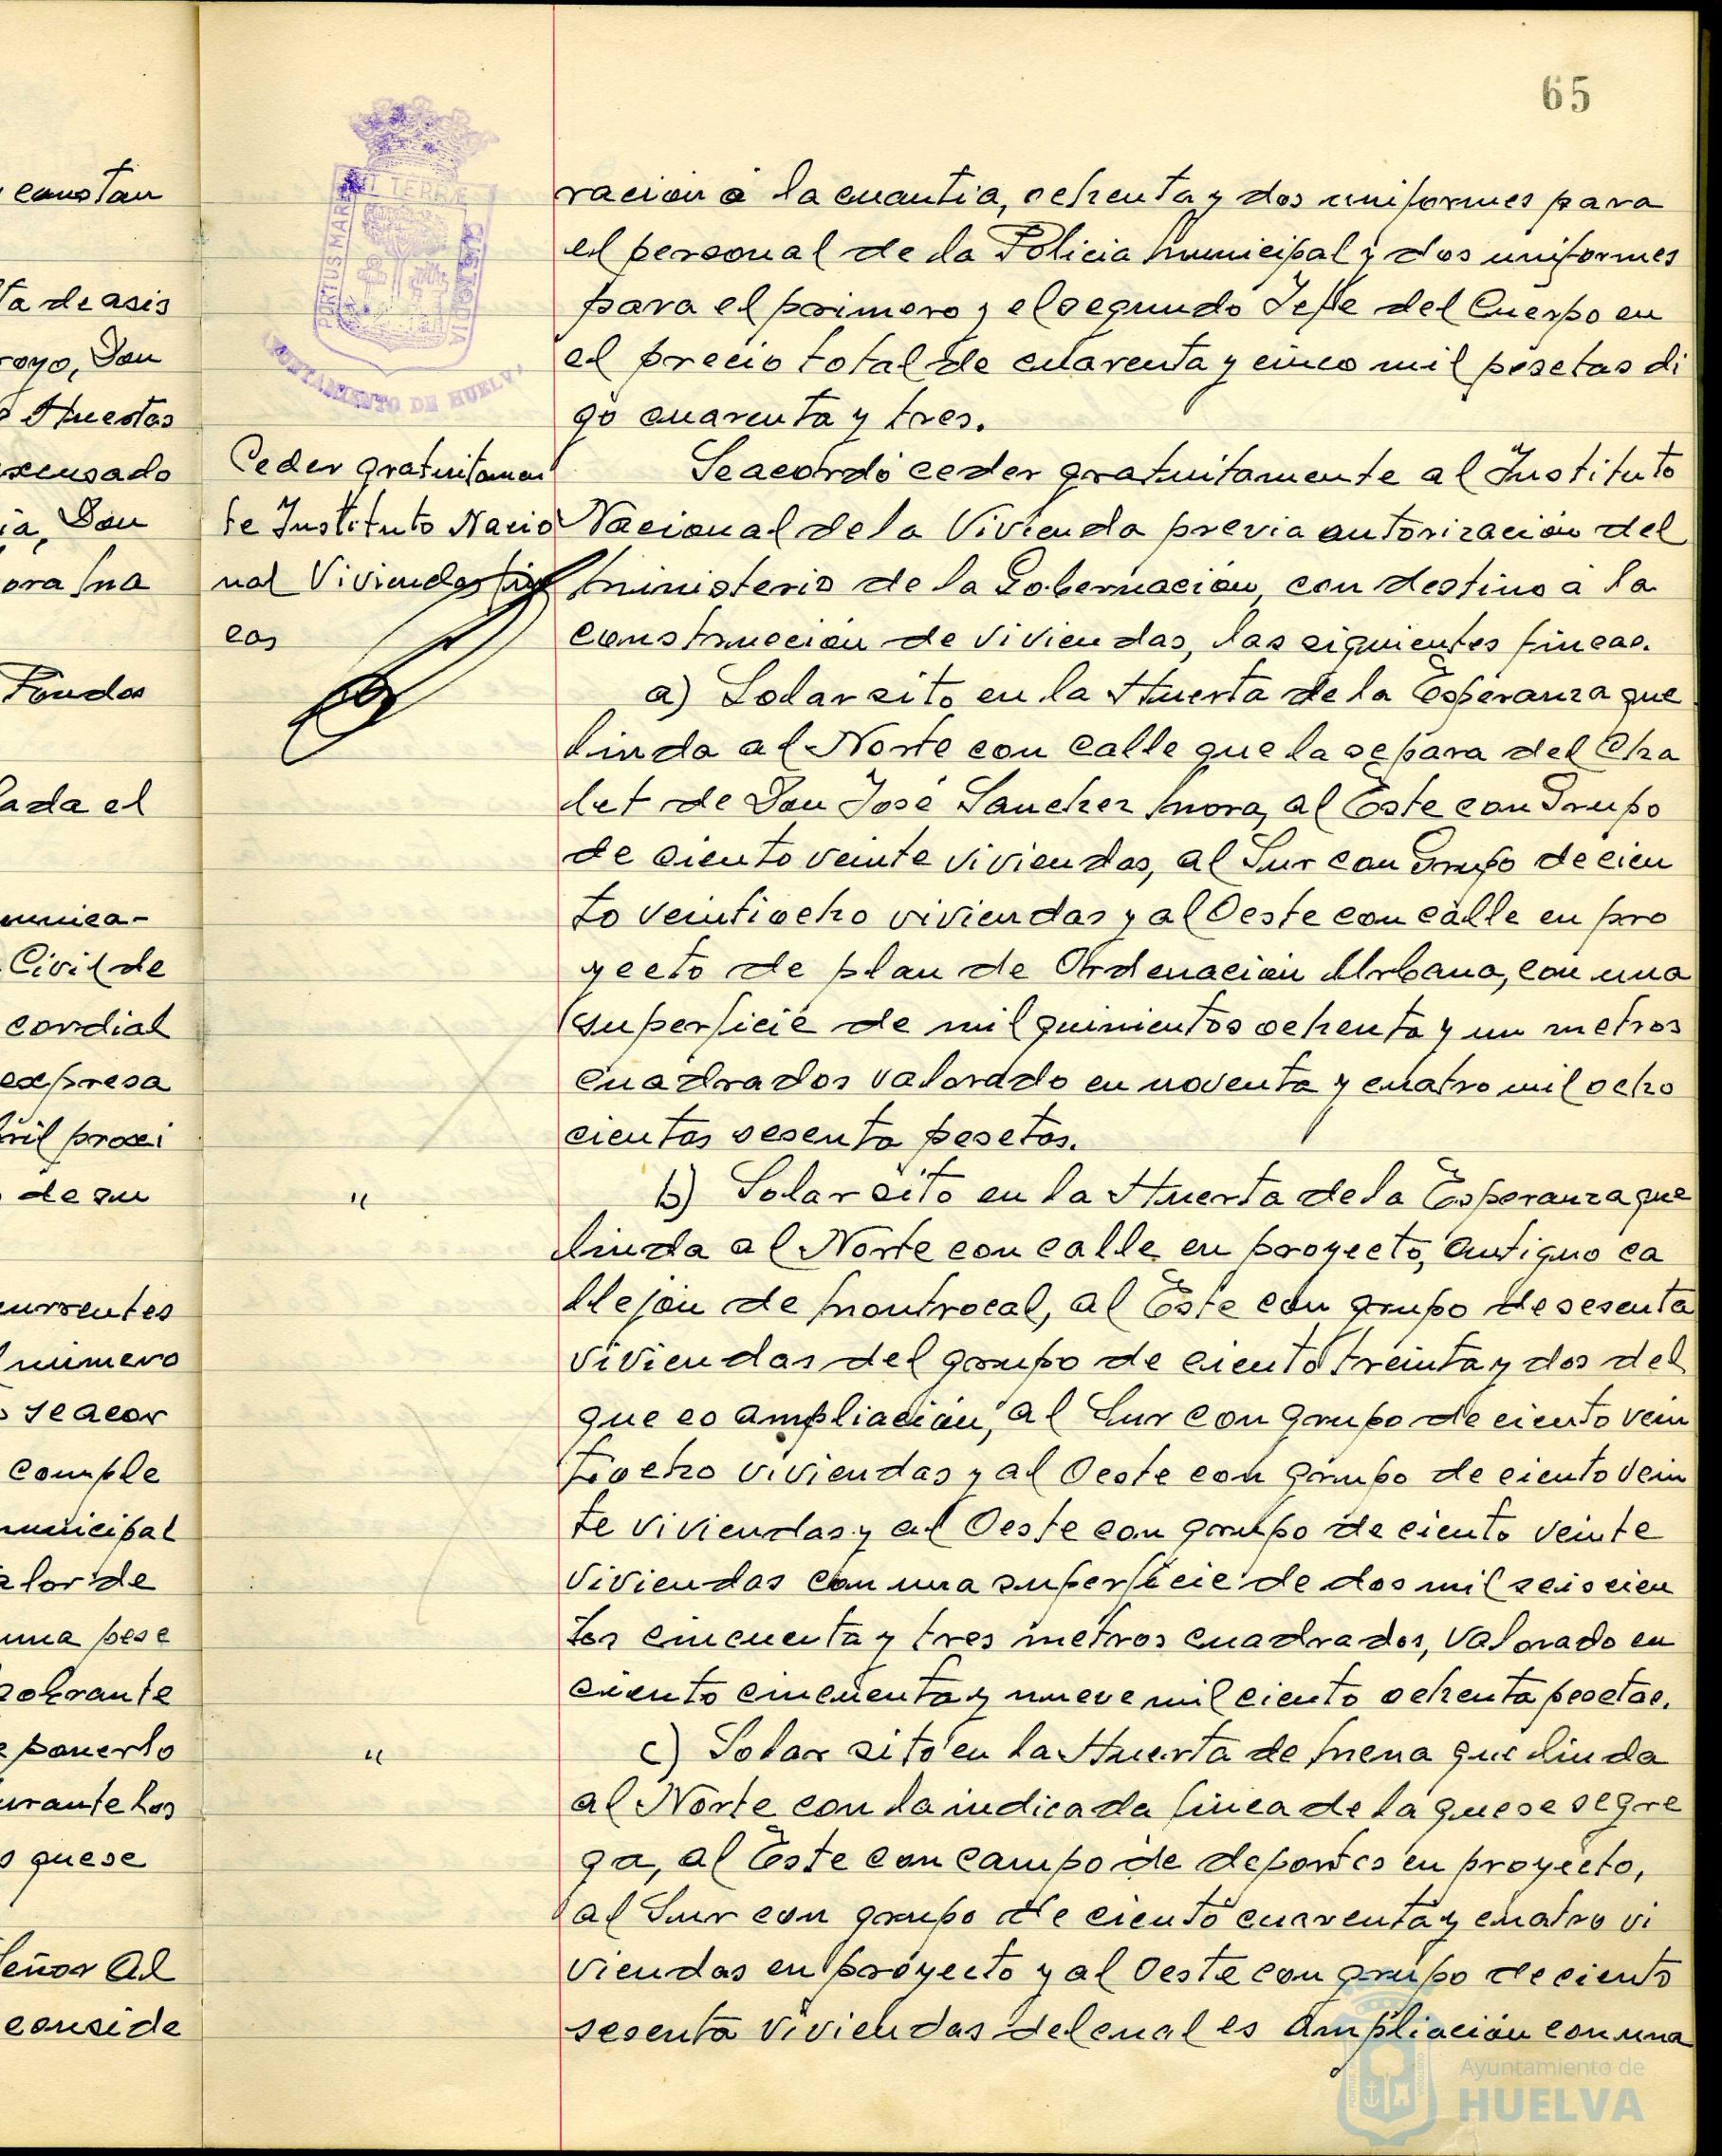 65
constan
ta de asis
royo, Don
Huestas
xcusado
ia, Don
ora Ma
Fondos
lada el
munica-
Civil de
cordial
expresa
bril proxi
de su
currentes
numero
se acor
comple
municipal
alor de
una pese
sobrante
ponerlo
urante los
que se
eñor Al
conside
PORTUS MARIS ET TERRÆ CUSTODIA
AYUNTAMIENTO DE HUELVA
Ceder gratuitamen
te Instituto Nacio
nal Viviendas fin
cas
"
"
racion á la cuantia, ochenta y dos uniformes para
el personal de la Policia Municipal y dos uniformes
para el primero y el segundo Jefe del Cuerpo en
el precio total de cuarenta y cinco mil pesetas di
go cuarenta y tres.
Se acordó ceder gratuitamente al Instituto
Nacional de la Vivienda previa autorización del
Ministerio de la Gobernación, con destino a la
construcción de viviendas, las siguientes fincas.
a) Solar sito en la Huerta de la Esperanza que
linda al Norte con calle que la separa del Cha
let de Don José Sanchez Mora, al Este con Grupo
de ciento veinte viviendas, al Sur con Grupo de cien
to veintiocho viviendas y al Oeste con calle en pro
yecto de plan de Ordenación Urbana, con una
superficie de mil quinientos ochenta y un metros
cuadrados valorado en noventa y cuatro mil ocho
cientas sesenta pesetas.
b) Solar sito en la Huerta de la Esperanza que
linda al Norte con calle en proyecto, antiguo ca
llejón de Montrocal, al Este con grupo de sesenta
viviendas del grupo de ciento treinta y dos del
que es ampliación, al Sur con grupo de ciento vein
tiocho viviendas y al Oeste con grupo de ciento vein
te viviendas y al Oeste con grupo de ciento veinte
viviendas con una superficie de dos mil seiscien
tos cincuenta y tres metros cuadrados, valorado en
ciento cincuenta y nueve mil ciento ochenta pesetas.
c) Solar sito en la Huerta de Mena que linda
al Norte con la indicada finca de la que se segre
ga, al Este con campo de deportes en proyecto,
al Sur con grupo de ciento cuarenta y cuatro vi
viendas en proyecto y al Oeste con grupo de ciento
sesenta viviendas del cual es ampliación con una
Ayuntamiento de
HUELVA